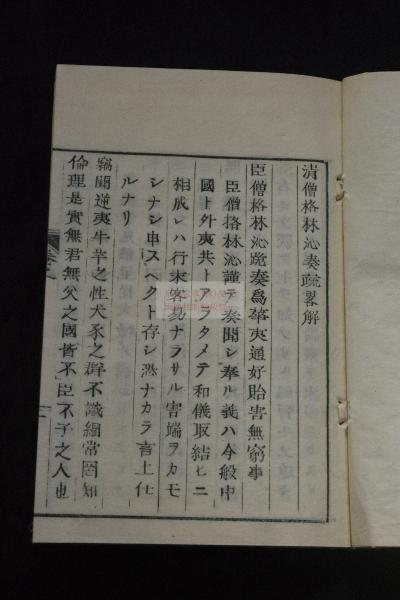 清僧格林沁奏疏畧解
臣僧格林沁跪奏為華夷通好貽害無窮事
臣僧格林沁謹テ奏聞シ奉ル義ハ今般中
國ト外夷共トアラタメテ和儀取結ヒニ
相成レハ行末容易ナラサル害端ヲカモ
シナシ申スヘクト存シ恐ナカラ言上仕
ルナリ
竊聞逆夷牛羊之性犬豕之群不識綱常罔知
倫理是實無君無父之國皆不臣不子之人也